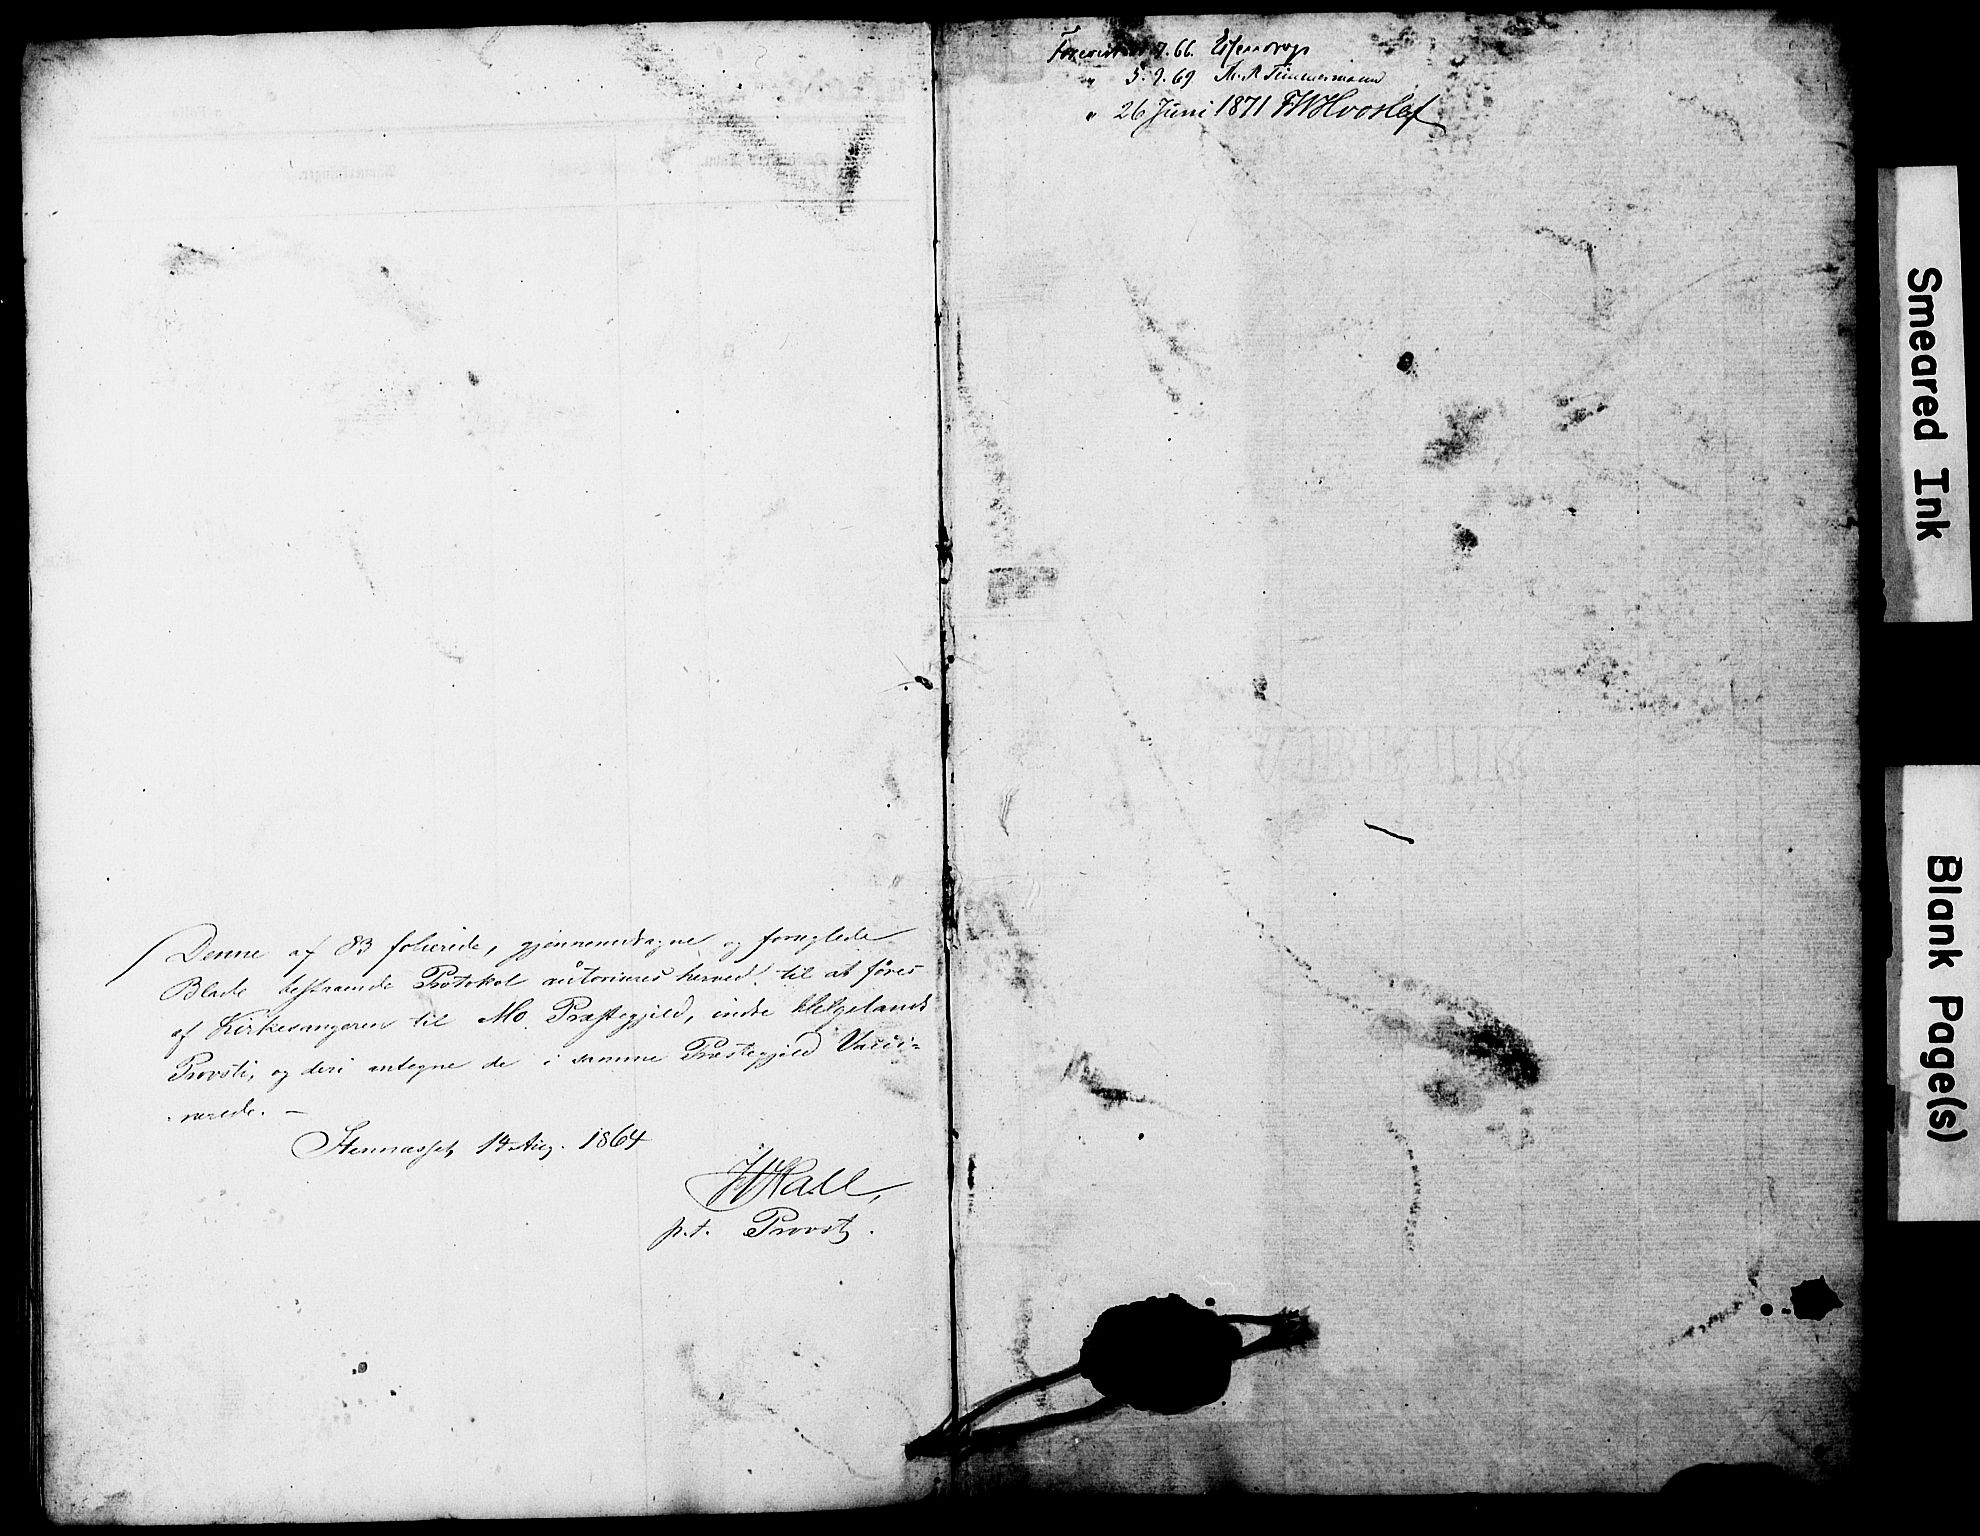 Denne af 83 folierede, gjennemdragne og forseglede
Blade bestaaende Protokol autoriseres herved til at føres
af Kirkesangeren til Mo Præstegjeld, indre Helgelands
Provsti, og deri antegne de i samme Præstegjeld Vacci=
nerede. —
14 Aug. 1864
p.t. Provst.
Foreevist 7.66.
" 5.9.69 Timmermann
" 26 Juni 1871 FWHvoslef
Smeared Ink
Blank Page(s)